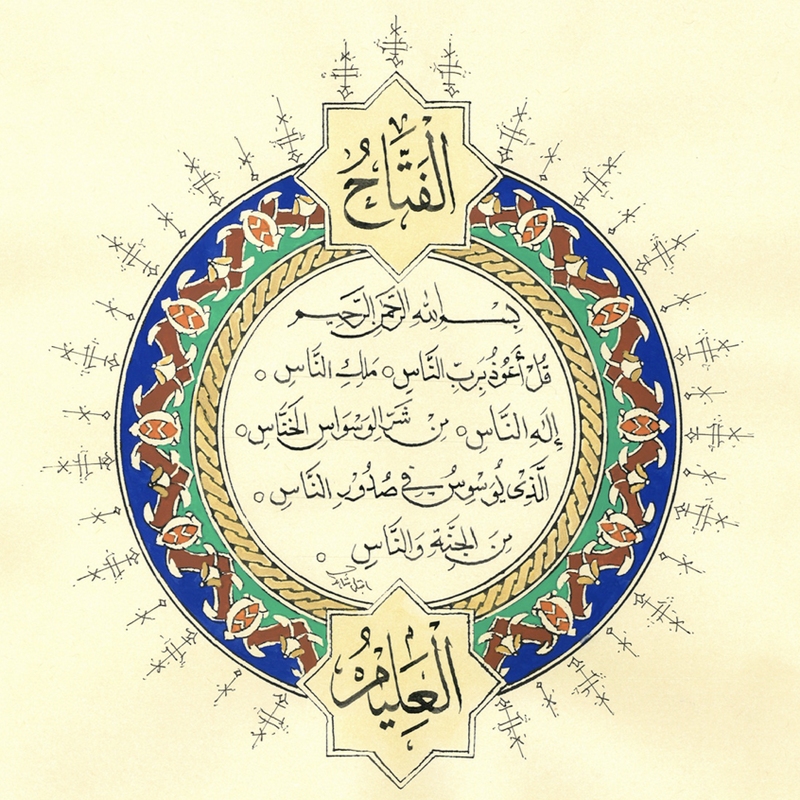 الْفَتَّاحُ
بسم الله الرحمن الرحيم
قُلْ أَعُوذُ بِرَبِّ النَّاسِ ○ مَلِكِ النَّاسِ ○
إِلَهِ النَّاسِ ○ مِن شَرِّ الْوَسْوَاسِ الْخَنَّاسِ ○
الَّذِي يُوَسْوِسُ فِي صُدُورِ النَّاسِ ○
مِنَ الْجِنَّةِ وَالنَّاسِ ○
الْعَلِيمُ